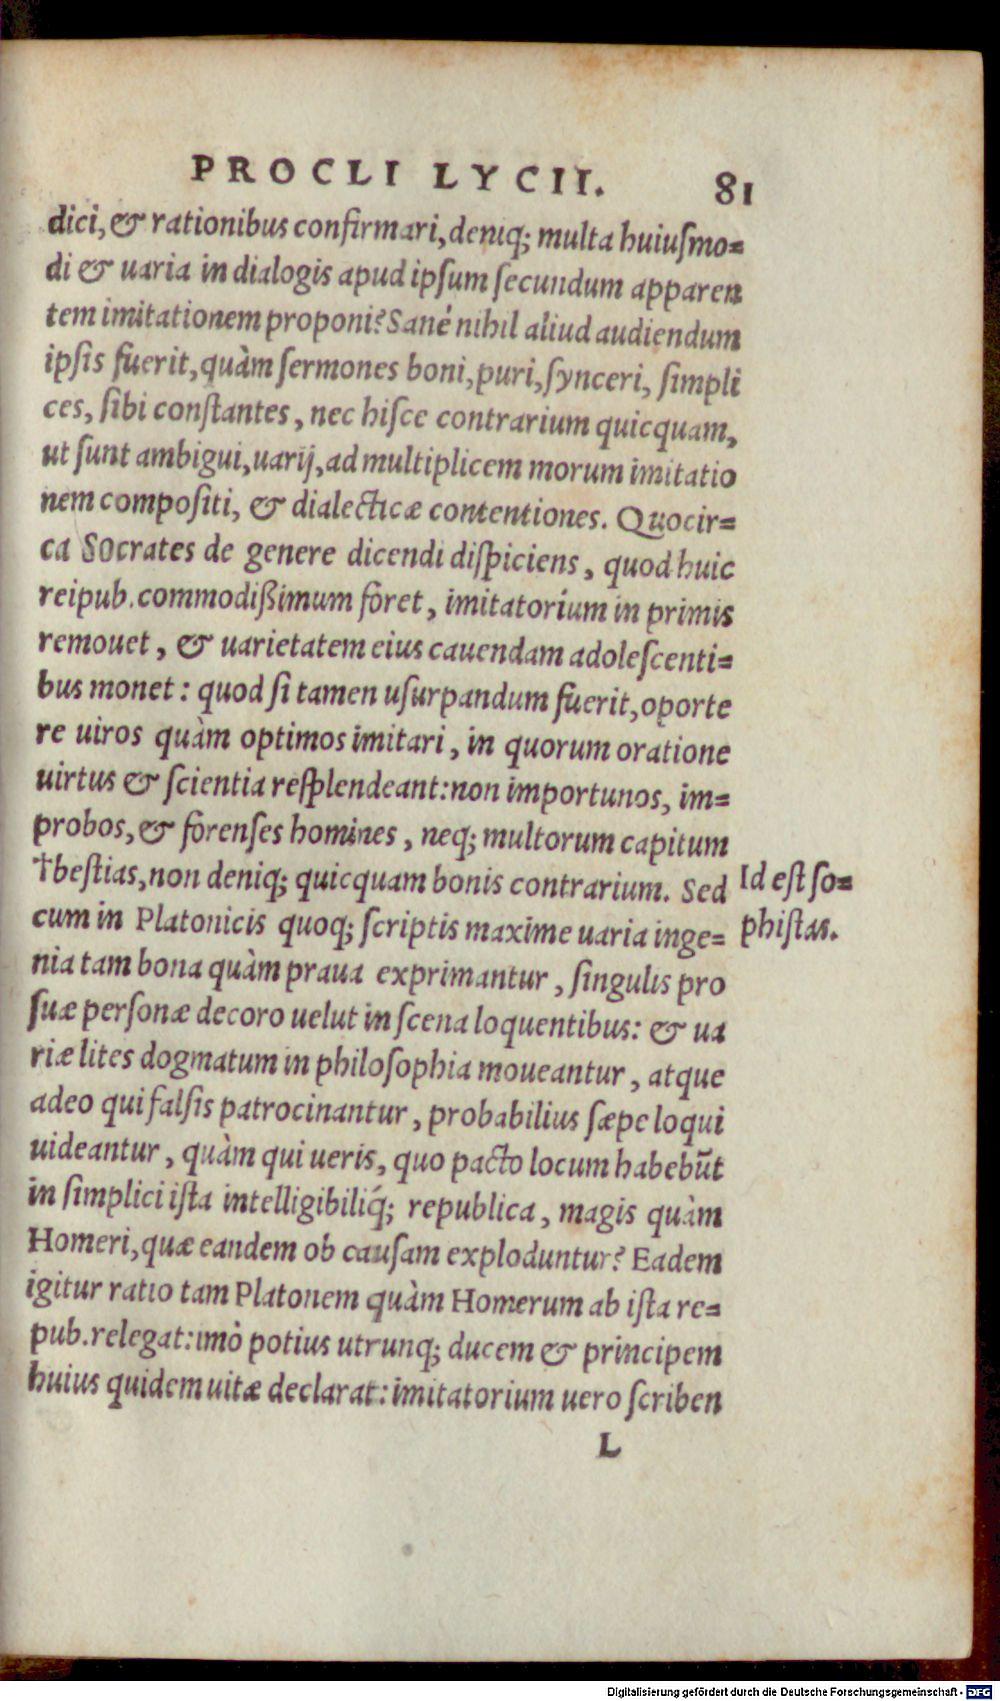 PROCLI LYCII. 81
dici, & rationibus confirmari, deniq; multa huiuſmo=
di & uaria in dialogis apud ipſum ſecundum apparen
tem imitationem proponi? Sanè nihil aliud audiendum
ipſis fuerit, quàm ſermones boni, puri, ſynceri, ſimpli
ces, ſibi conſtantes, nec hiſce contrarium quicquam,
ut ſunt ambigui, uarij, ad multiplicem morum imitatio
nem compoſiti, & dialecticæ contentiones. Quocir=
ca SOcrates de genere dicendi diſpiciens, quod huic
reipub. commodißimum foret, imitatorium in primis
remouet, & uarietatem eius cauendam adoleſcenti=
bus monet: quod ſi tamen uſurpandum fuerit, oporte
re uiros quàm optimos imitari, in quorum oratione
uirtus & ſcientia reſplendeant: non importunos, im=
probos, & forenſes homines, neq; multorum capitum
†beſtias, non deniq; quicquam bonis contrarium. Sed
Id eſt ſo=
phiſtas.
cum in Platonicis quoq; ſcriptis maxime uaria inge=
nia tam bona quàm praua exprimantur, ſingulis pro
ſuæ perſonæ decoro uelut in ſcena loquentibus: & ua
riæ lites dogmatum in philoſophia moueantur, atque
adeo qui falſis patrocinantur, probabilius ſæpe loqui
uideantur, quàm qui ueris, quo pacto locum habebūt
in ſimplici iſta intelligibiliq́; republica, magis quàm
Homeri, quæ eandem ob cauſam exploduntur? Eadem
igitur ratio tam Platonem quàm Homerum ab iſta re=
pub. relegat: imò potius utrunq; ducem & principem
huius quidem uitæ declarat: imitatorium uero ſcriben
L
Digitalisierung gefördert durch die Deutsche Forschungsgemeinschaft - DFG